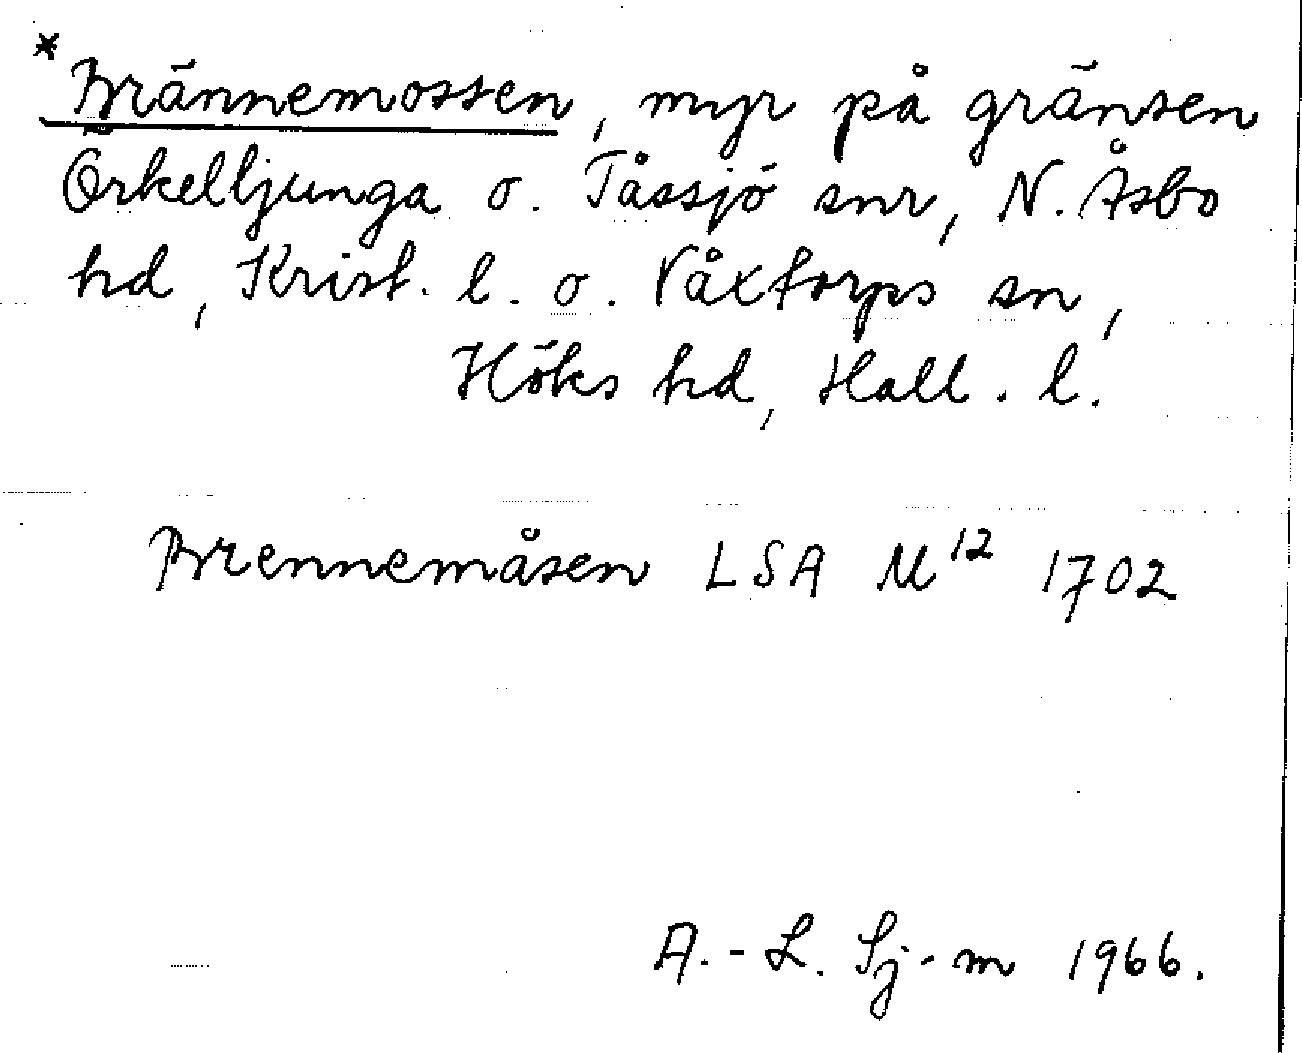 * Brännemossen, myr på gränsen
Örkelljunga o. Tåssjö snr, N. Åsbo
hd, Krist. l. o. Våxtorps sn,
Höks hd, Hall. l.
Brennemåsen LSA M¹² 1702
A.-L. Sj-m 1966.